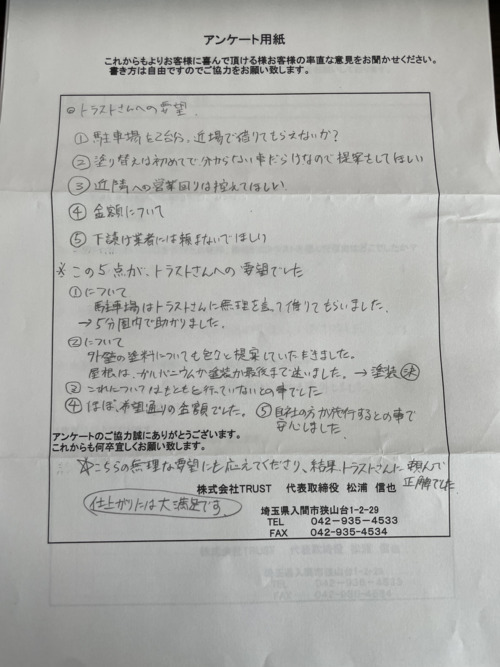 アンケート用紙
これからもよりお客様に喜んで頂ける様お客様の率直な意見をお聞かせください。
書き方は自由ですのでご協力をお願い致します。
◎トラストさんへの要望
① 駐車場を2台分、近場で借りてもらえないか?
② 塗り替えは初めてで分からない事だらけなので提案をしてほしい
③ 近隣への営業回りは控えてほしい
④ 金額について
⑤ 下請け業者には頼まないでほしい
※この5点が、トラストさんへの要望でした
①について
駐車場はトラストさんに無理を言って借りてもらいました。
→5分圏内で助かりました。
②について
外壁の塗料についても色々と提案していただきました。
屋根は、ガルバニウムか塗装か最後まで迷いました。→塗装決
③ これについてはもともと行っていないとの事でした
④ ほぼ、希望通りの金額でした。 ⑤ 自社の方が代行するとの事で
安心しました。
アンケートのご協力誠にありがとうございます。
これからも何卒宜しくお願い致します。
こちらの無理な要望にも応えてくださり、結果トラストさんに頼んで
正解でした
株式会社TRUST 代表取締役 松浦 信也
仕上がりには大満足です。
埼玉県入間市狭山台1-2-29
TEL 042-935-4533
FAX 042-934-4534